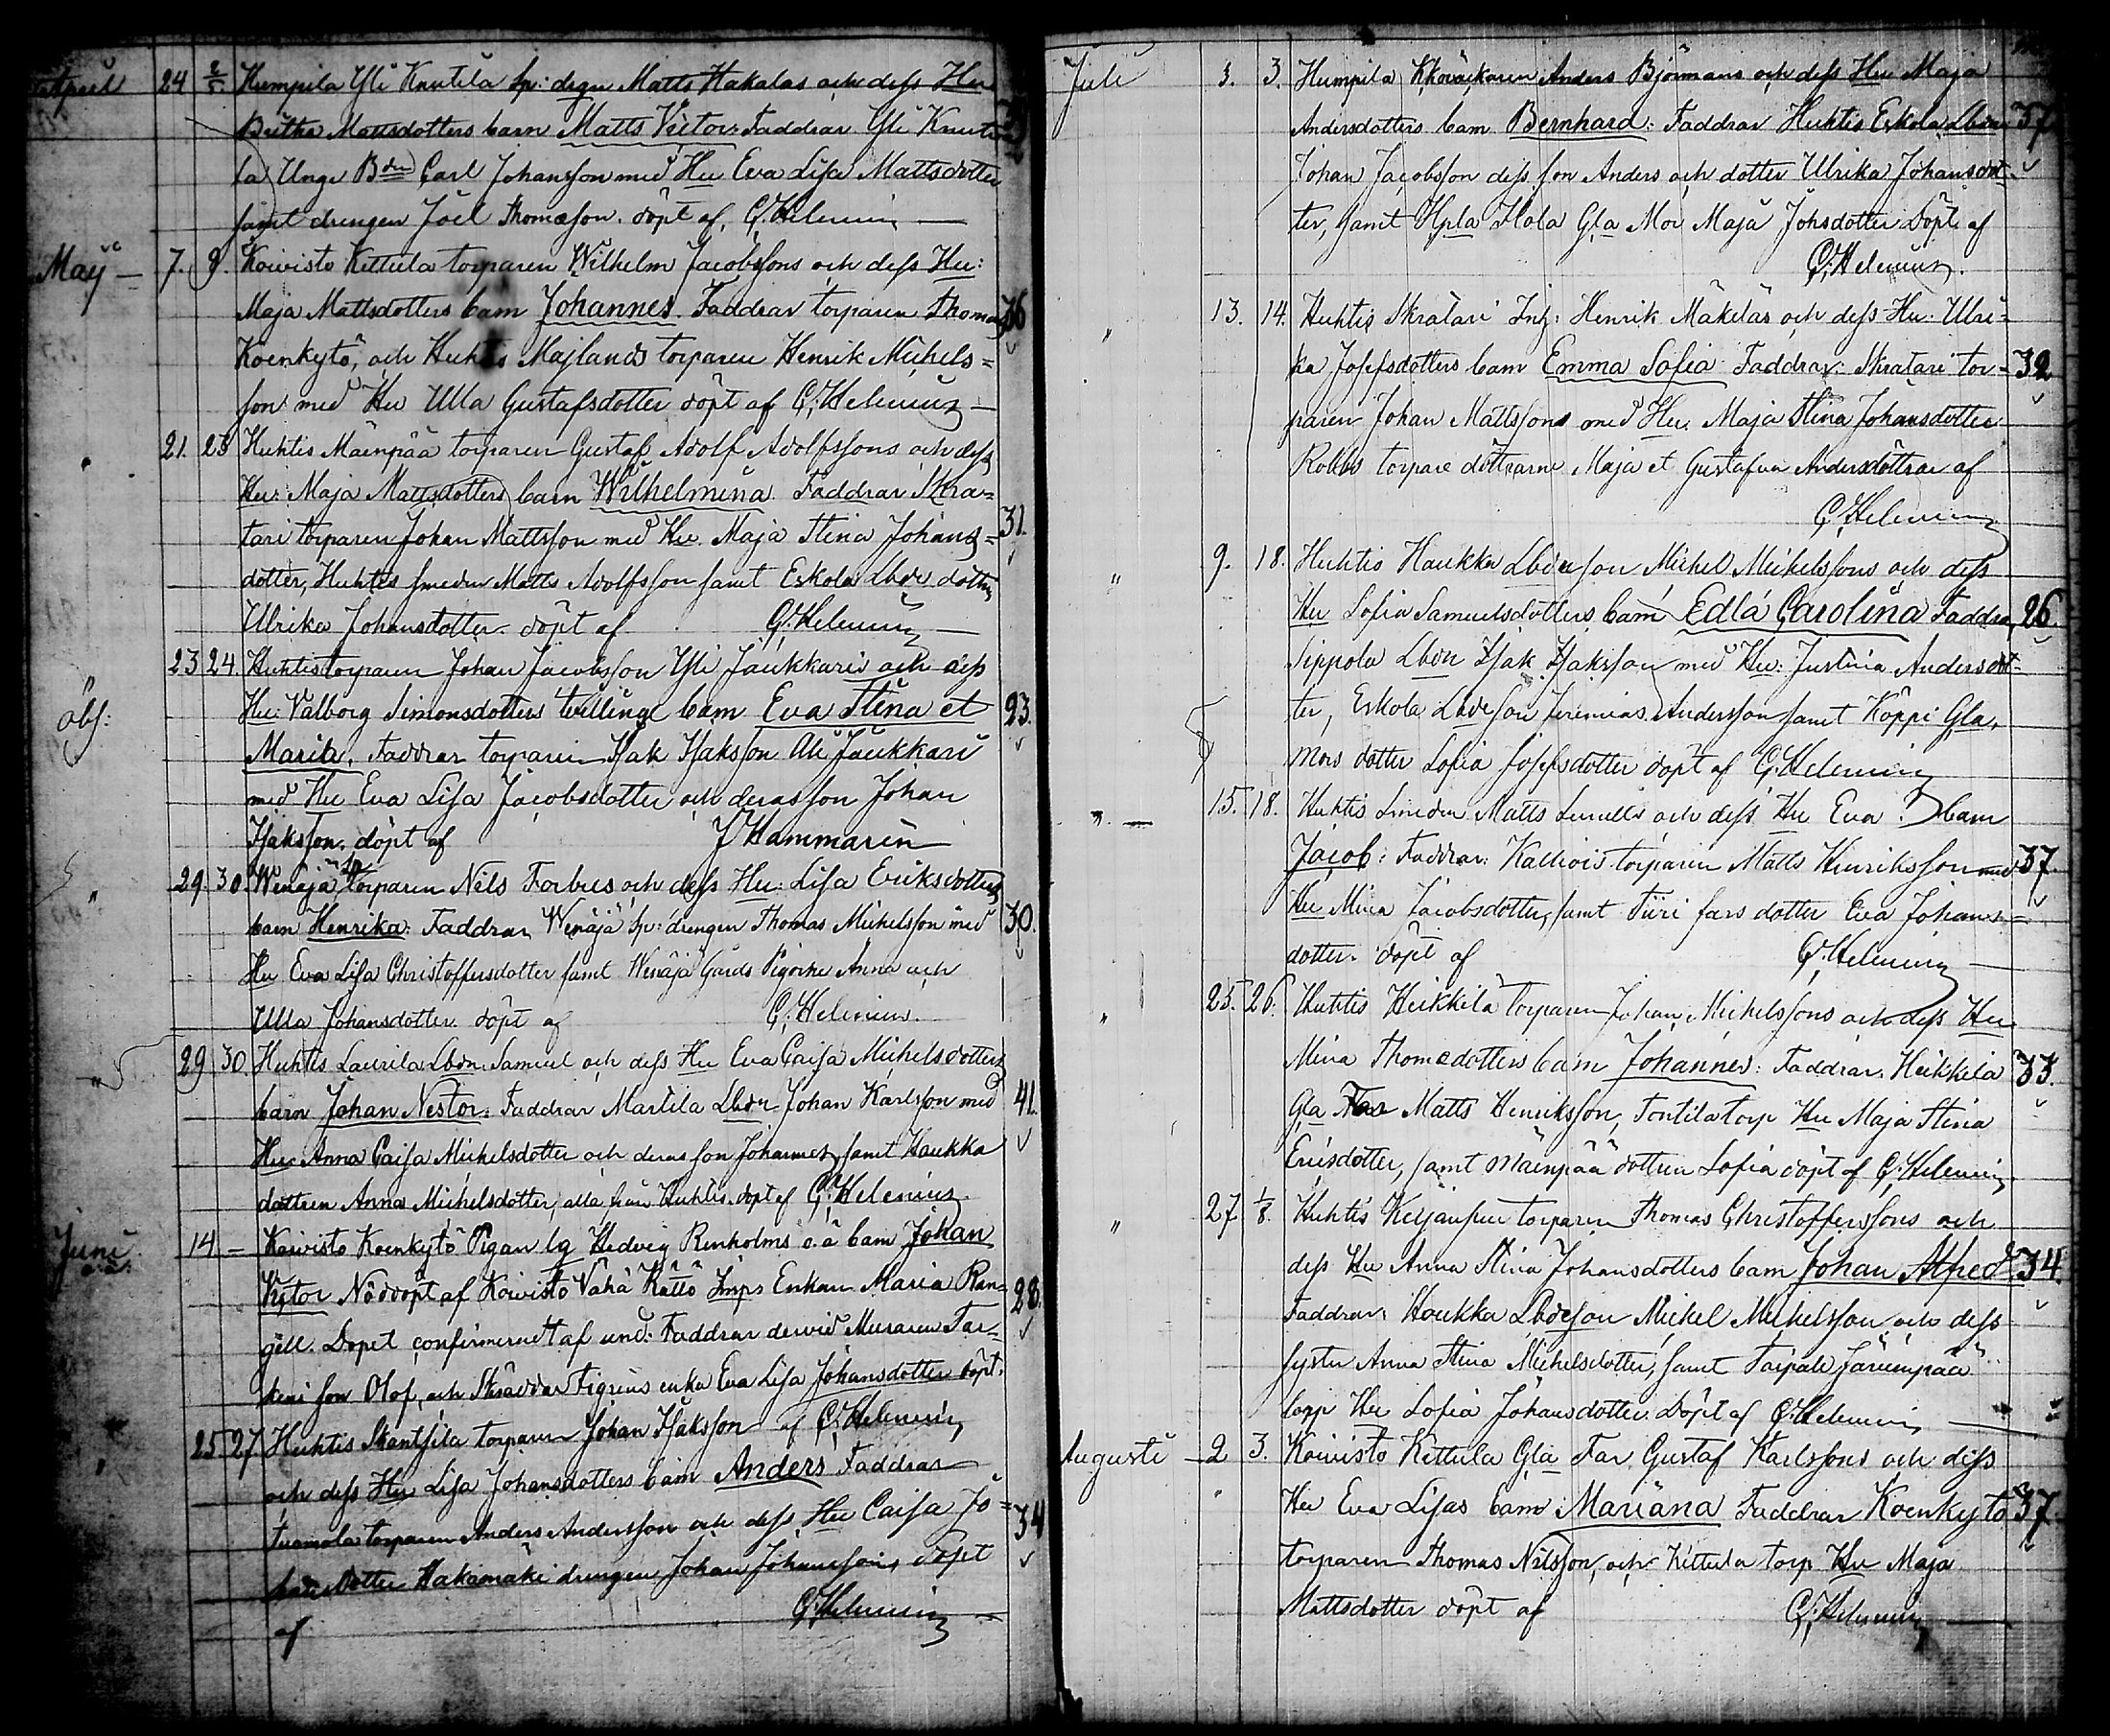 April 24 2/5 Humpila Yli Knutila Sp: drgn Matts Hakalas och dess Hu
Britha Mattsdotters barn Matts Victor: Faddrar Yli Knuti
la Unge Bdn Carl Johansson med Hu Eva Lisa Mattsdotter
samt drengen Joel Thomasson. döpt af. G. Helenius
Maij 7. 8. Koivisto Kittula torparen Wilhelm Jacobssons och dess Hu:
Maja Mattsdotters barn Johannes. Faddrar torparen Thomas 36
Koenkytö, och Huhtis Majlands torparen Henrik Michels=
son med Hu Ulla Gustafsdotter döpt af G. Helenius
21. 23 Huhtis Mäenpää torparen Gustaf Adolf Adolfssons och dess
Hu: Maja Mattsdotters barn Wilhelmina. Faddrar Skra=
tari torparen Johan Mattsson med Hu. Maja Stina Johans= 31.
dotter, Huhtis smeden Matts Adolfsson samt Eskola Lbdr dotter
Ulrika Johansdotter. döpt af G. Helenius
23 24. Huhtis torparen Johan Jacobsson Yli Jaukkari och dess
obs: Hu: Valborg Simonsdotters tvilling barn Eva Stina et 23.
Maria. Faddrar torparen Isak Isaksson Ali Jaukkari
med Hu Eva Lisa Jacobsdotter och deras son Johan
Isaksson. döpt af J Hammarén
" 29. 30. Wenäjä torparen Nils Forbus och dess Hu: Lisa Eriksdotters
barn Henrika: Faddrar Wenäjä Sp: drengen Thomas Michelsson med 30.
Hu Eva Lisa Christoffersdotter samt Wenäjä Gårds Pigorne Anna och
Ulla Johansdotter. döpt af G. Helenius.
" 29. 30. Huhtis Laurila Lbdn. Samuel och dess Hu Eva Caisa Michelsdotters
barn Johan Nestor: Faddrar Martila Lbdr Johan Karlsson med 41.
Hu: Anna Caisa Michelsdotter och deras son Johannes, samt Haukka
dottren Anna Michelsdotter, alla från Huhtis. döpt af G. Helenius.
Juni 14 — Koivisto Koenkytö Pigan lg Hedvig Renholms o. ä barn Johan
Victor Nöddöpt af Koivisto Vähä Kättö Enkan Maria Ran= 28.
gell. Dopet confirmeradt af und: Faddrar dervid Muraren Tar=
keni son Olof, och Skräddar Figreius enka Eva Lisa Johansdotter döpt.
25 27 Huhtis Skantsila torparen Johan Isaksson af G. Helenius
och dess Hu Lisa Johansdotters barn Anders Faddrar
Tuomola torparen Anders Andersson och dess Hu Caisa Jo= 34
hansdotter Hakamäki drengen Johan Johansson, döpt
af G. Helenius
Juli 3. 3. Humpila Anders Björmans och dess Hu Maja
Andersdotters barn Bernhard: Faddrar Huhtis Eskola Lbdn 37
Johan Jacobsson dess son Anders och dotter Ulrika Johansdot=
ter, samt Hpla Hola Gla Mor Maja Johsdotter Döpt. af
G. Helenius.
" 13. 14. Huhtis Skratari Inh: Henrik Mäkeläs och dess Hu. Ulri=
ka Josefsdotters barn Emma Sofia Faddrar: Skratari tor= 32
paren Johan Mattssons med Hu. Maja Stina Johansdotter
Robbs torpare döttrarne Maja et Gustafva Andersdöttrar af
G. Helenius
" 9. 18. Huhtis Haukka Lbdeson Michel Michelssons och dess
Hu Sofia Samuelsdotters barn Edla Carolina Faddrar 26.
Sippola Lbdn Isak Isaksson med Hu: Justina Andersdot=
ter, Eskola Lbdeson Jeremias Andersson samt Koppi Gla.
Mors dotter Sofia Josefsdotter döpt af G. Helenius
" 15. 18. Huhtis Smeden Matts och dess Hu Eva ? barn
Jacob: Faddrar: Kalliois torparen Matts Henriksson med 37.
Hu Mina Jacobsdotter, samt Tiiri fars dotter Eva Johans=
dotter. döpt af G. Helenius
" 25. 26. Huhtis Heikkilä Torparen Johan Michelssons och dess Hu
Mina Thomædotters barn Johannes: Faddrar. Heikkilä 33.
Gla Far Matts Henriksson, Tontila torp Hu Maja Stina
Ericsdotter, samt Mäenpää dottren Sofia döpt af G. Helenius.
" 27 1/8. Huhtis torparen Thomas Christofferssons och
dess Hu Anna Stina Johansdotters barn Johan Alfred 34.
Faddrar: Haukka Lbdeson Michel Michelsson och dess
syster Anna Stina Michelsdotter, samt Taipale Järvenpää
torp Hu Sofia Johansdotter. Döpt af G. Helenius
Augusti 2 3. Koivisto Kittula Gla Far Gustaf Karlssons och dess
Hu Eva Lisas barn Mariana Faddrar Koenkytö 37.
torparen Thomas Nilsson, och Kittula torp Hu Maja
Mattsdotter döpt af G. Helenius